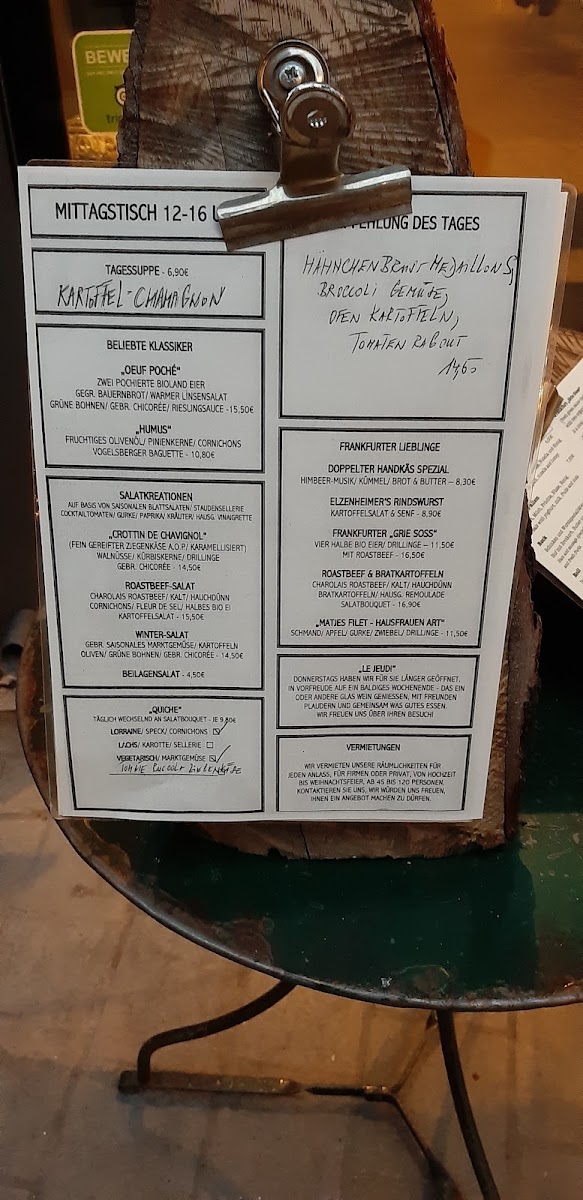 BEWE
MITTAGSTISCH 12-16 U
TAGESSUPPE - 6,90€
KARTOFFEL-CHAMPIGNON
BELIEBTE KLASSIKER
„OEUF POCHÉ“
ZWEI POCHIERTE BIOLAND EIER
GEGR. BAUERNBROT/ WARMER LINSENSALAT
GRÜNE BOHNEN/ GEBR. CHICORÉE/ RIESLINGSAUCE -15,50€
„HUMUS“
FRUCHTIGES OLIVENÖL/ PINIENKERNE/ CORNICHONS
VOGELSBERGER BAGUETTE - 10,80€
SALATKREATIONEN
AUF BASIS VON SAISONALEN BLATTSALATEN/ STAUDENSELLERIE
COCKTAILTOMATEN/ GURKE/ PAPRIKA/ KRÄUTER/ HAUSG. VINAIGRETTE
„CROTTIN DE CHAVIGNOL“
(FEIN GEREIFTER ZIEGENKÄSE A.O.P./ KARAMELLISIERT)
WALNÜSSE/ KÜRBISKERNE/ DRILLINGE
GEBR. CHICORÉE - 14,50€
ROASTBEEF-SALAT
CHAROLAIS ROASTBEEF/ KALT/ HAUCHDÜNN
CORNICHONS/ FLEUR DE SEL/ HALBES BIO EI
KARTOFFELSALAT - 15,50€
WINTER-SALAT
GEBR. SAISONALES MARKTGEMÜSE/ KARTOFFELN
OLIVEN/ GRÜNE BOHNEN/ GEBR. CHICORÉE - 14,50€
BEILAGENSALAT - 4,50€
„QUICHE“
TÄGLICH WECHSELND AN SALATBOUQUET - JE 9,80€
LORRAINE/ SPECK/ CORNICHONS
LACHS/ KAROTTE/ SELLERIE
VEGETARISCH/ MARKTGEMÜSE
FEHLUNG DES TAGES
HÄHNCHENBRUST MEDAILLONS,
BROCCOLI GEMÜSE,
OFEN KARTOFFELN,
TOMATEN RAGOUT
FRANKFURTER LIEBLINGE
DOPPELTER HANDKÄS SPEZIAL
HIMBEER-MUSIK/ KÜMMEL/ BROT & BUTTER – 8,30€
ELZENHEIMER'S RINDSWURST
KARTOFFELSALAT & SENF - 8,90€
FRANKFURTER „GRIE SOSS“
VIER HALBE BIO EIER/ DRILLINGE – 11,50€
MIT ROASTBEEF - 16,50€
ROASTBEEF & BRATKARTOFFELN
CHAROLAIS ROASTBEEF/ KALT/ HAUCHDÜNN
BRATKARTOFFELN/ HAUSG. REMOULADE
SALATBOUQUET - 16,90€
„MATJES FILET - HAUSFRAUEN ART“
SCHMAND/ APFEL/ GURKE/ ZWIEBEL/ DRILLINGE - 11,50€
„LE JEUDI“
DONNERSTAGS HABEN WIR FÜR SIE LÄNGER GEÖFFNET.
IN VORFREUDE AUF EIN BALDIGES WOCHENENDE - DAS EIN
ODER ANDERE GLAS WEIN GENIESSEN, MIT FREUNDEN
PLAUDERN UND GEMEINSAM WAS GUTES ESSEN.
WIR FREUEN UNS ÜBER IHREN BESUCH!
VERMIETUNGEN
WIR VERMIETEN UNSERE RÄUMLICHKEITEN FÜR
JEDEN ANLASS, FÜR FIRMEN ODER PRIVAT, VON HOCHZEIT
BIS WEIHNACHTSFEIER, AB 45 BIS 120 PERSONEN.
KONTAKTIEREN SIE UNS, WIR WÜRDEN UNS FREUEN,
IHNEN EIN ANGEBOT MACHEN ZU DÜRFEN.